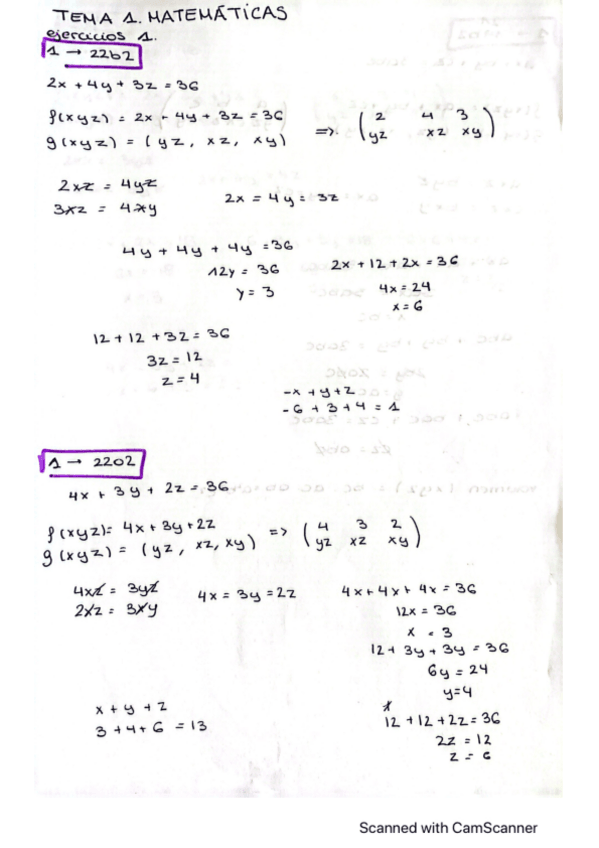 TEMA 1. MATEMÁTICAS
ejercicios 1.
1 → 22b2
2x + 4y + 3z = 36
f(xyz) = 2x + 4y + 3z = 36
g(xyz) = (yz, xz, xy) => (2 4 3
yz xz xy)
2xz = 4yz
3xz = 4xy
2x = 4y = 3z
4y + 4y + 4y = 36
12y = 36
y = 3
2x + 12 + 2x = 36
4x = 24
x = 6
12 + 12 + 3z = 36
3z = 12
z = 4
-x + y + z
-6 + 3 + 4 = 1
1 → 2202
4x + 3y + 2z = 36
f(xyz) = 4x + 3y + 2z
g(xyz) = (yz, xz, xy) => (4 3 2
yz xz xy)
4xz = 3yz
2xz = 3xy
4x = 3y = 2z
4x + 4x + 4x = 36
12x = 36
x = 3
12 + 3y + 3y = 36
6y = 24
y = 4
12 + 12 + 2z = 36
2z = 12
z = 6
x + y + z
3 + 4 + 6 = 13
Scanned with CamScanner